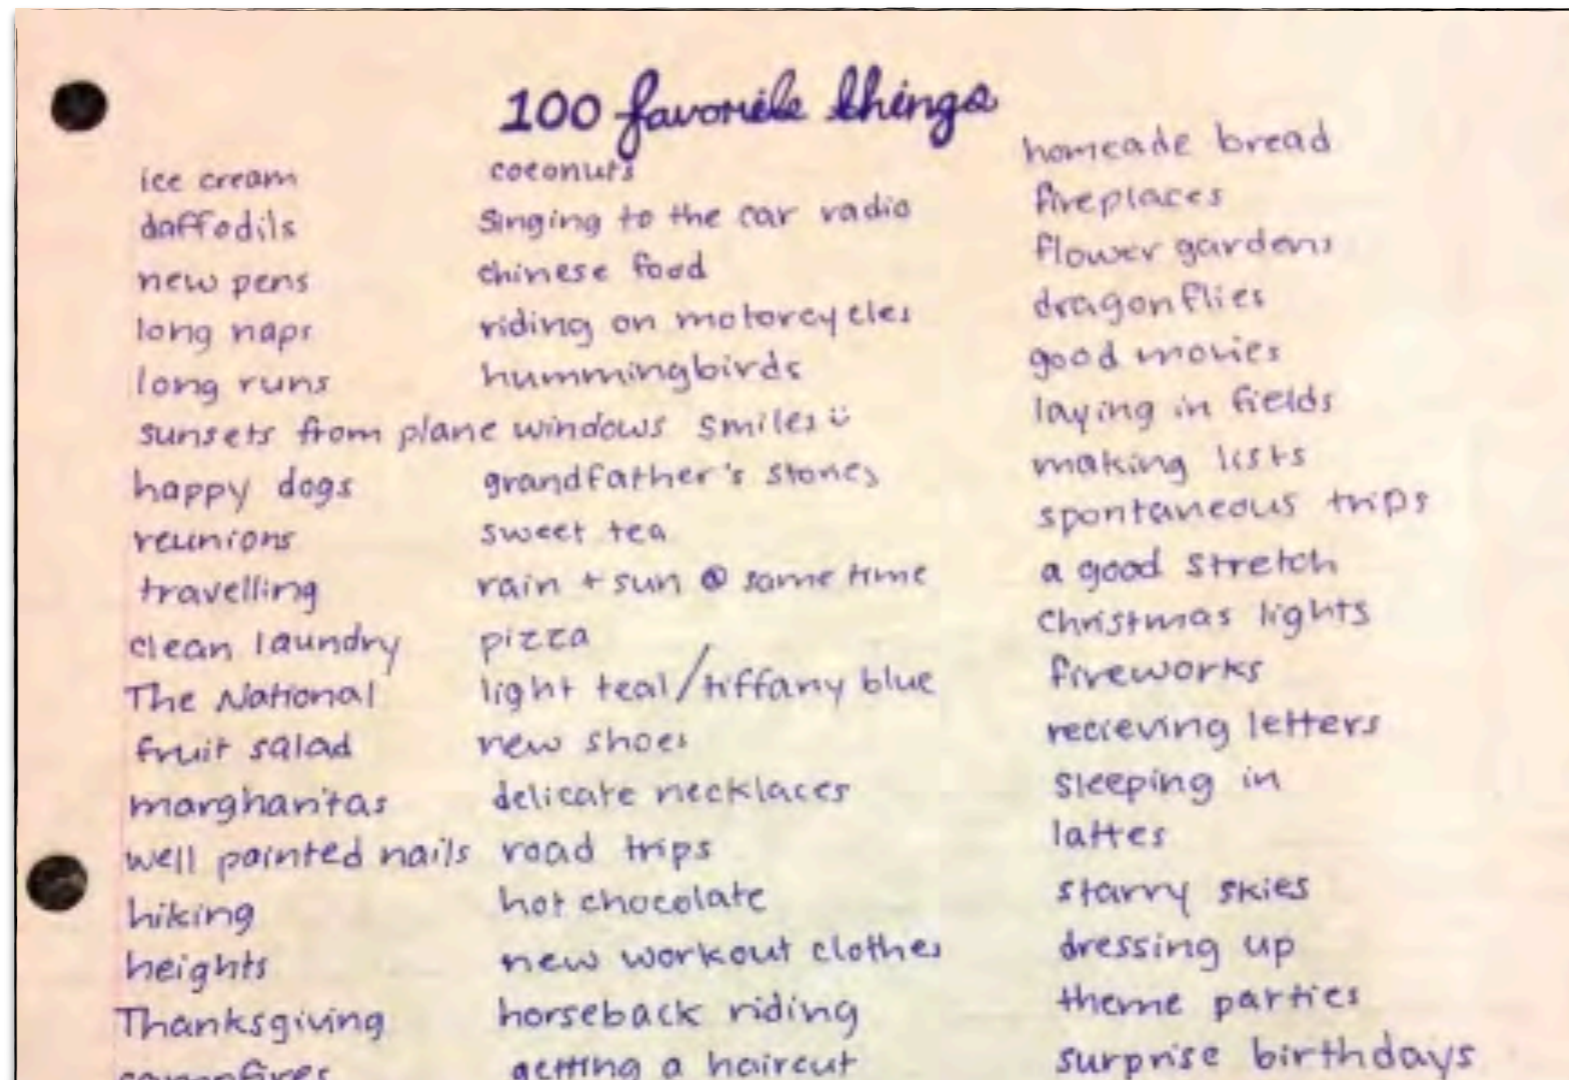 100 favorite things
ice cream
daffodils
new pens
long naps
long runs
sunsets from plane windows
happy dogs
reunions
travelling
clean laundry
The National
fruit salad
margharitas
well painted nails
hiking
heights
Thanksgiving
campfires
coconuts
singing to the car radio
chinese food
riding on motorcycles
hummingbirds
smiles ü
grandfather's stories
sweet tea
rain + sun @ same time
pizza
light teal/tiffany blue
new shoes
delicate necklaces
road trips
hot chocolate
new workout clothes
horseback riding
getting a haircut
homeade bread
fireplaces
flower gardens
dragonflies
good movies
laying in fields
making lists
spontaneous trips
a good stretch
christmas lights
fireworks
recieving letters
sleeping in
lattes
starry skies
dressing up
theme parties
surprise birthdays